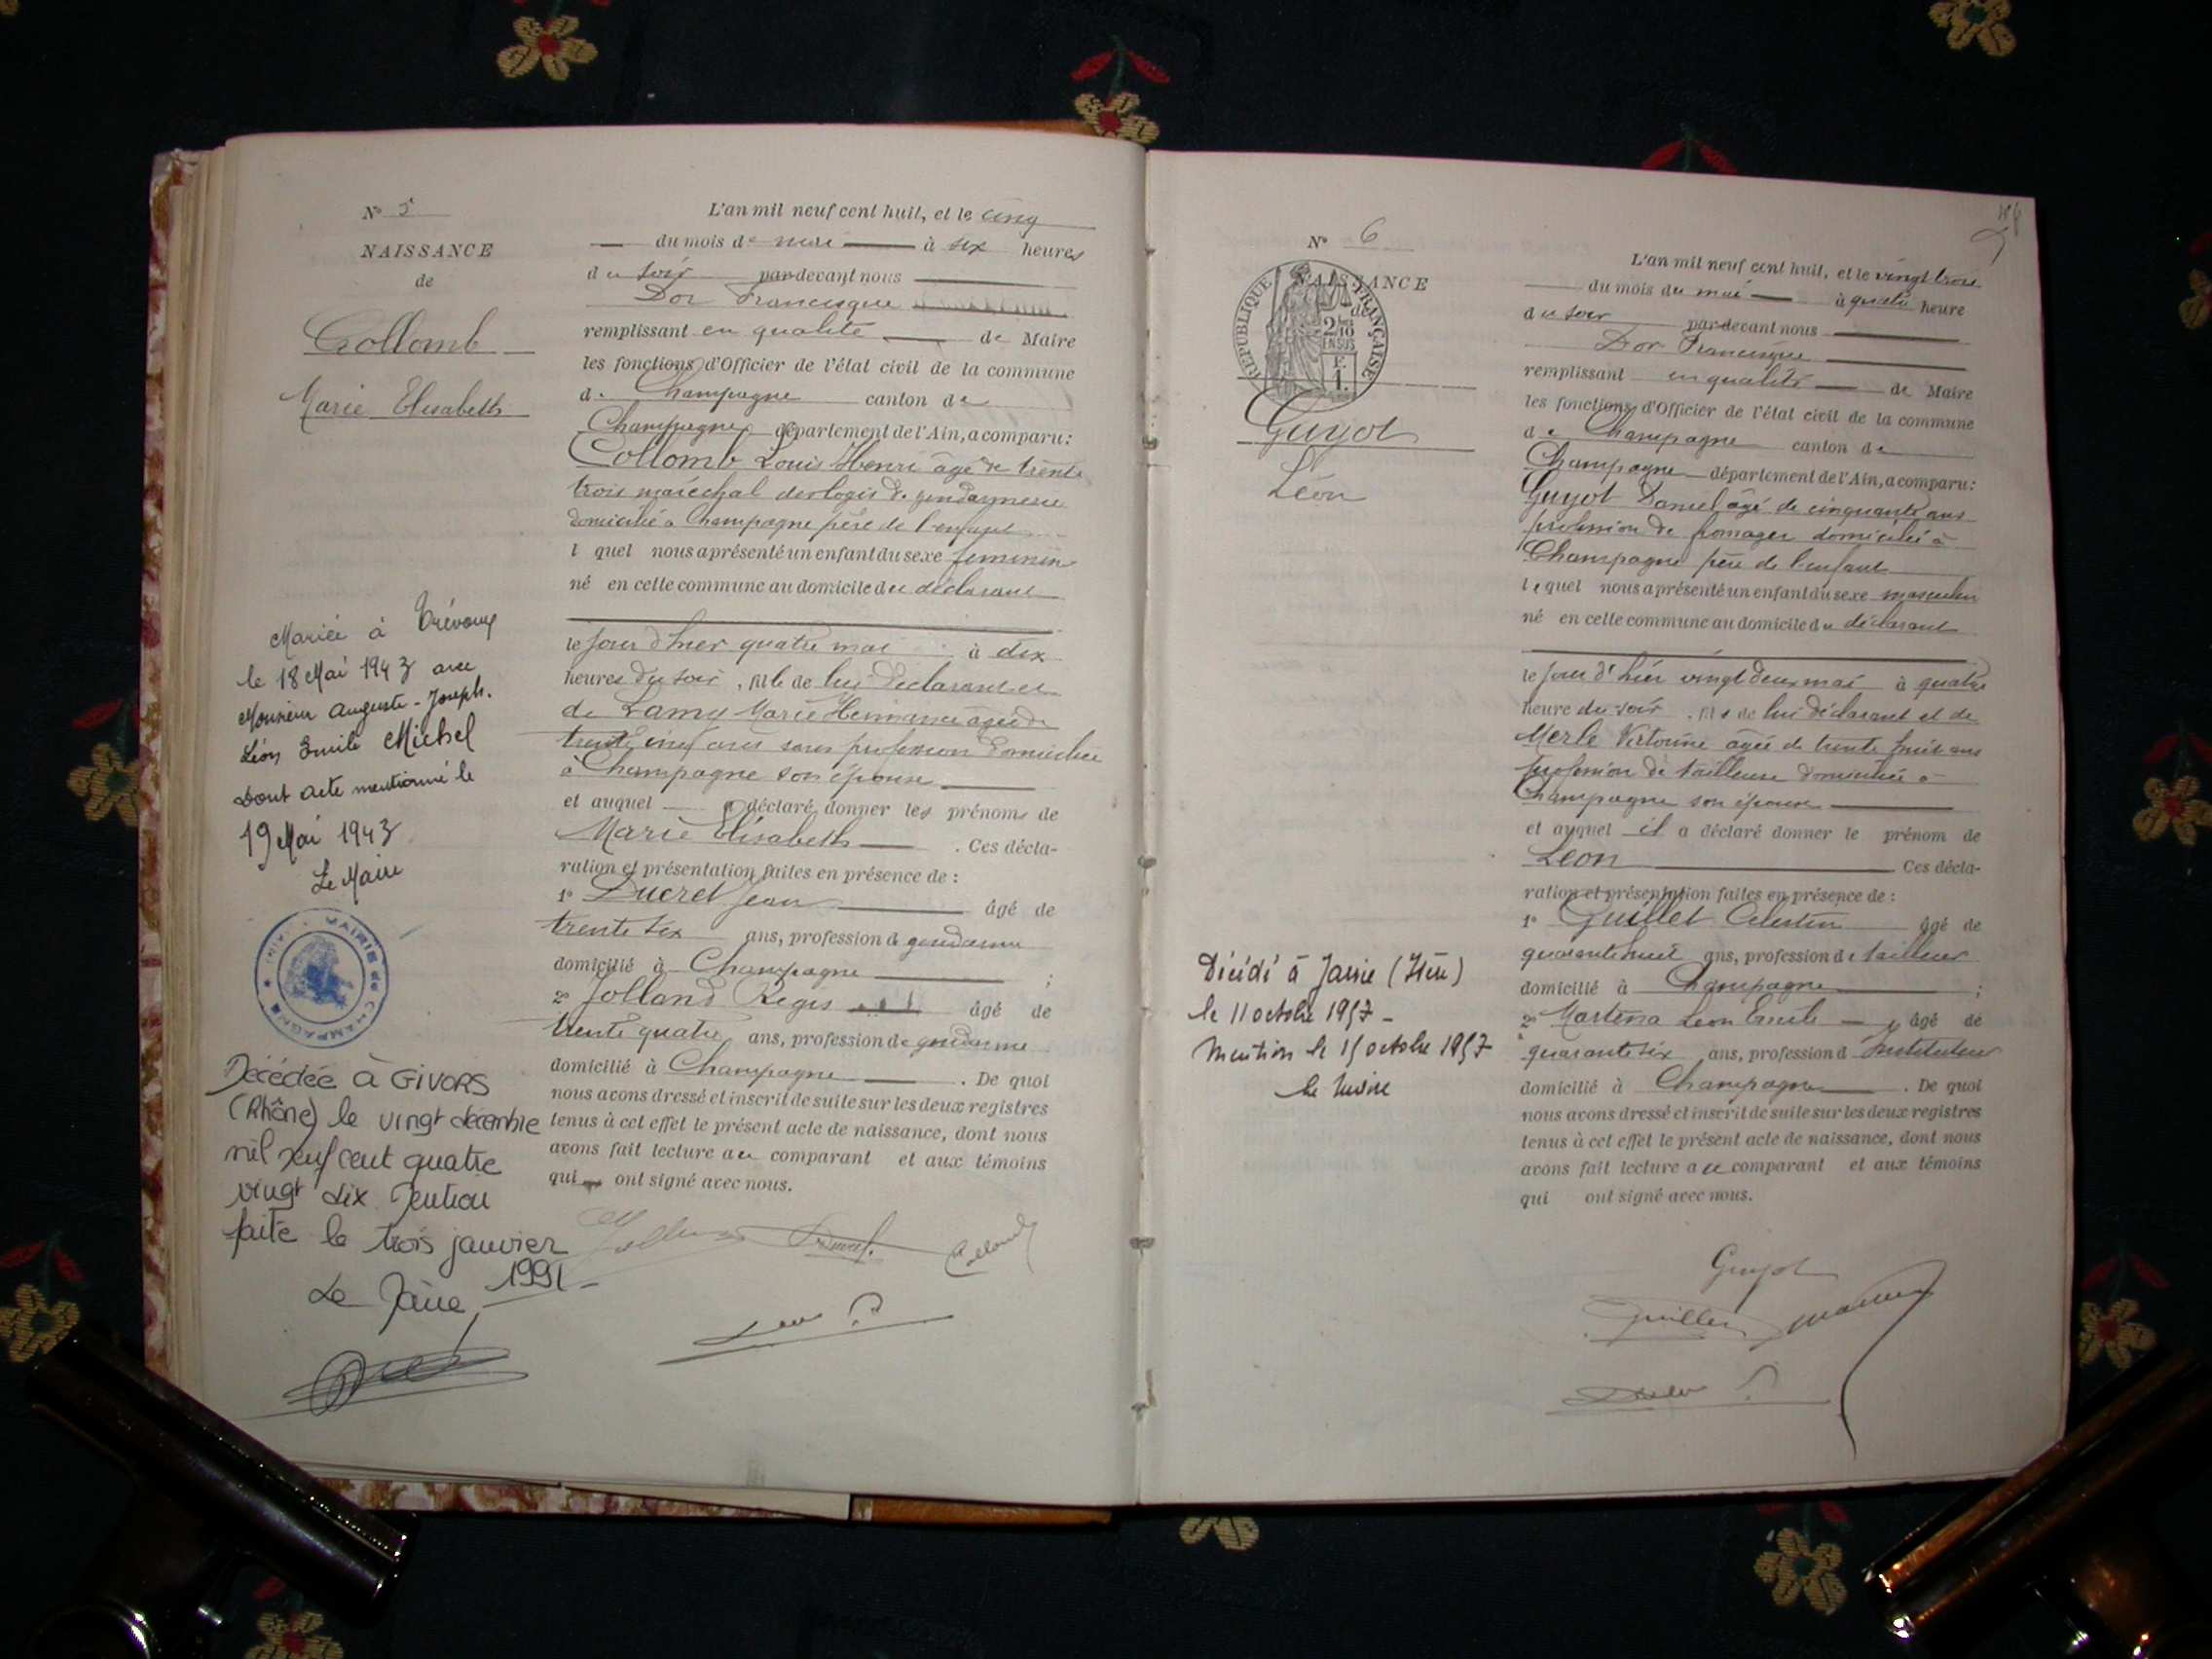 N° 5
NAISSANCE
de
Collomb
Marie Elisabeth
Mariée à Trévoux
le 18 Mai 1943 avec
Monsieur Auguste-Joseph.
Léon Emile Michel
Dont acte mentionné le
19 Mai 1943
Le Maire
MAIRIE de CHAMPAGNE
Décédée à GIVORS
(Rhône) le vingt décembre
mil neuf cent quatre
vingt dix Mention
faite le trois janvier
1991
Le Maire,
L'an mil neuf cent huit, et le cinq
du mois de mai à six heures
du soir par-devant nous
Dor Francisque
remplissant en qualité de Maire
les fonctions d'Officier de l'état civil de la commune
de Champagne canton de
Champagne département de l'Ain, a comparu :
Collomb Louis Henri âgé de trente
trois maréchal des logis de gendarmerie
domicilié à Champagne père de l'enfant
l quel nous a présenté un enfant du sexe féminin
né en cette commune au domicile du déclarant
le jour d'hier quatre mai à dix
heures du soir, fille de lui déclarant et
de Lamy Marie Hermance âgée de
trente cinq ans sans profession domiciliée
à Champagne son épouse
et auquel a déclaré donner les prénoms de
Marie Elisabeth . Ces décla-
ration et présentation faites en présence de :
1° Ducret Jean âgé de
trente six ans, profession de gendarme
domicilié à Champagne ;
2° Jolland Régis âgé de
trente quatre ans, profession de gendarme
domicilié à Champagne . De quoi
nous avons dressé et inscrit de suite sur les deux registres
tenus à cet effet le présent acte de naissance, dont nous
avons fait lecture au comparant et aux témoins
qui ont signé avec nous.
Collomb
N° 6
NAISSANCE
de
REPUBLIQUE FRANÇAISE
2/10 EN SUS
F.
1.
Guyot
Léon
Décédé à Jarrie (Isère)
le 11 octobre 1957 -
Mention le 15 octobre 1957
le Maire
L'an mil neuf cent huit, et le vingt trois
du mois du mai à quatre heure
du soir par-devant nous
Dor Francisque
remplissant en qualité de Maire
les fonctions d'Officier de l'état civil de la commune
de Champagne canton de
Champagne département de l'Ain, a comparu :
Guyot Daniel âgé de cinquante ans
profession de fromager domicilié à
Champagne père de l'enfant
lequel nous a présenté un enfant du sexe masculin
né en cette commune au domicile du déclarant
le jour d'hier vingt deux mai à quatre
heure du soir, fils de lui déclarant et de
Merle Victorine âgée de trente huit ans
profession de tailleuse domiciliée à
Champagne son épouse
et auquel il a déclaré donner le prénom de
Léon Ces décla-
ration et présentation faites en présence de :
1° Guillet Celestin âgé de
quarante huit ans, profession de tailleur
domicilié à Champagne ;
2° Leon Emile âgé de
quarante six ans, profession d'instituteur
domicilié à Champagne . De quoi
nous avons dressé et inscrit de suite sur les deux registres
tenus à cet effet le présent acte de naissance, dont nous
avons fait lecture au comparant et aux témoins
qui ont signé avec nous.
Guyot
Guillet